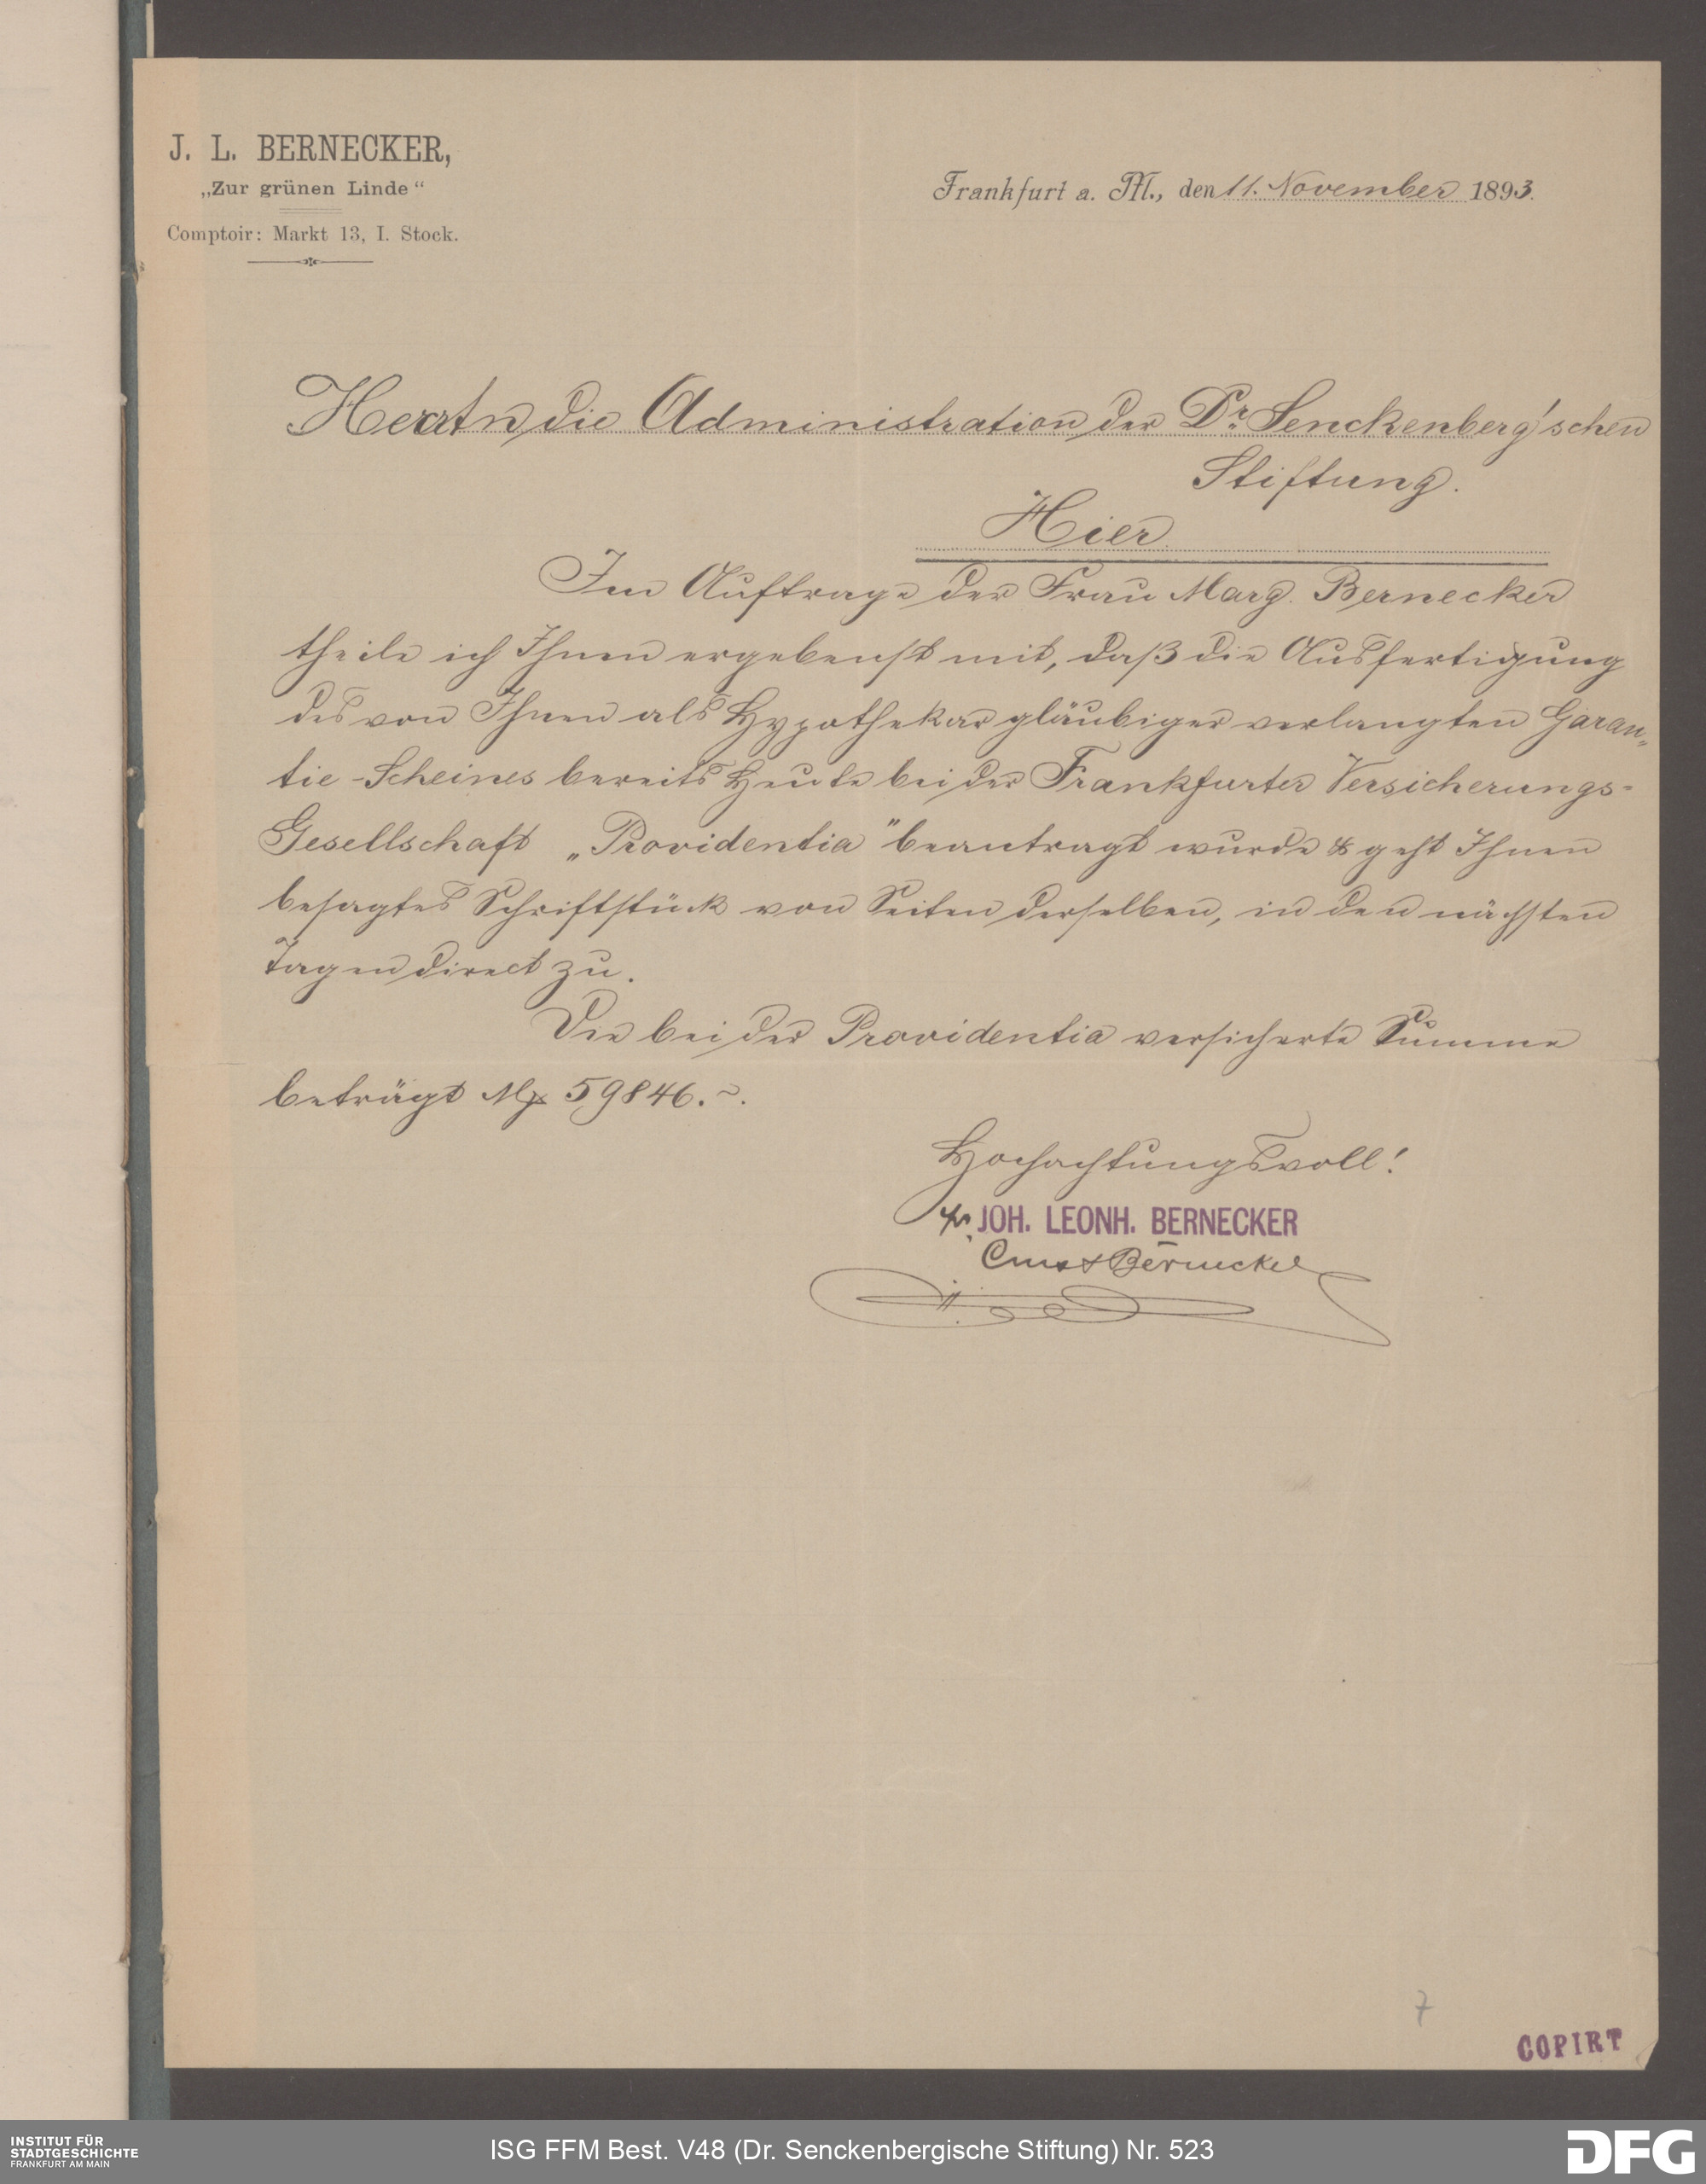 J. L. BERNECKER,
„Zur grünen Linde“
Comptoir: Markt 13, I. Stock.
Frankfurt a. M., den 11. November 1893.
An die Administration der Dr. Senckenberg'schen
Stiftung.
Hier
Im Auftrage der Frau Marg. Bernecker
theile ich Ihnen ergebenst mit, daß die Ausfertigung
des von Ihnen als Hypothekargläubiger verlangten Garan-
tie-Scheines bereits heute bei der Frankfurter Versicherungs-
Gesellschaft „Providentia“ beantragt wurde & geht Ihnen
besagtes Schriftstück von Seiten derselben, in den nächsten
Tagen direct zu.
Die bei der Providentia versicherte Summe
beträgt M 59846.-.
Hochachtungsvoll!
pr. JOH. LEONH. BERNECKER
Ernst Bernecker
7
COPIRT
INSTITUT FÜR
STADTGESCHICHTE
FRANKFURT AM MAIN
ISG FFM Best. V48 (Dr. Senckenbergische Stiftung) Nr. 523
DFG